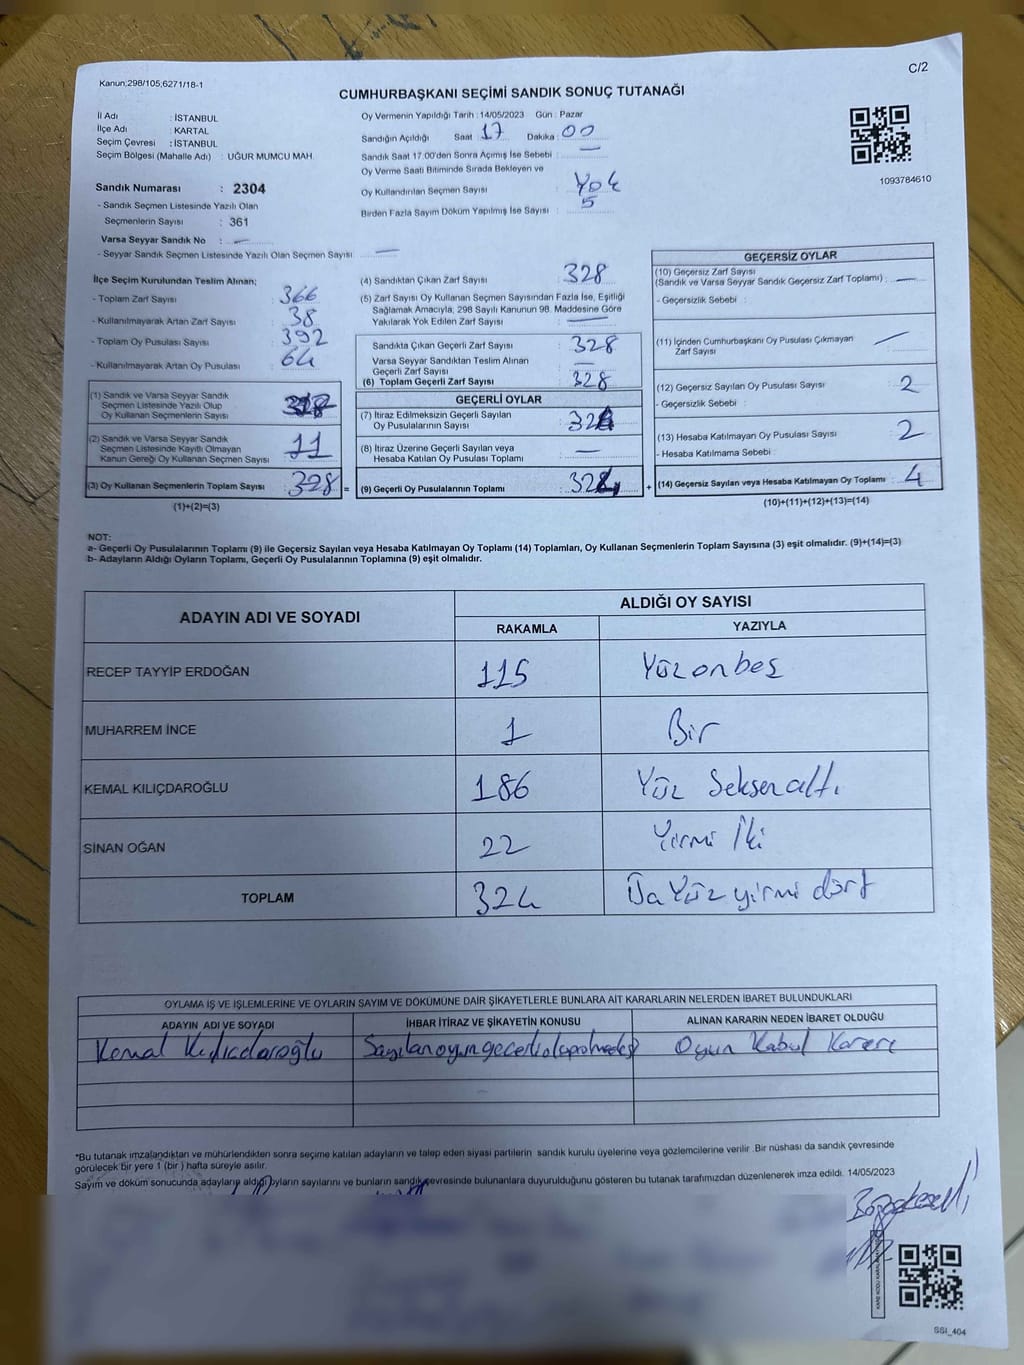 Kanun;298/105,6271/18-1
C/2
CUMHURBAŞKANI SEÇİMİ SANDIK SONUÇ TUTANAĞI
İl Adı : İSTANBUL
İlçe Adı : KARTAL
Seçim Çevresi : İSTANBUL
Seçim Bölgesi (Mahalle Adı) : UĞUR MUMCU MAH.
Sandık Numarası : 2304
- Sandık Seçmen Listesinde Yazılı Olan
Seçmenlerin Sayısı : 361
Varsa Seyyar Sandık No : —
- Seyyar Sandık Seçmen Listesinde Yazılı Olan Seçmen Sayısı —
Oy Vermenin Yapıldığı Tarih : 14/05/2023 Gün : Pazar
Sandığın Açıldığı Saat 17 Dakika : 00
Sandık Saat 17:00'den Sonra Açımış İse Sebebi : —
Oy Verme Saati Bitiminde Sırada Bekleyen ve
Oy Kullandırılan Seçmen Sayısı : Yok
Birden Fazla Sayım Döküm Yapılmış İse Sayısı : 5
1093784610
İlçe Seçim Kurulundan Teslim Alınan;
- Toplam Zarf Sayısı : 366
- Kullanılmayarak Artan Zarf Sayısı : 38
- Toplam Oy Pusulası Sayısı : 392
- Kullanılmayarak Artan Oy Pusulası : 64
(1) Sandık ve Varsa Seyyar Sandık
Seçmen Listesinde Yazılı Olup
Oy Kullanan Seçmenlerin Sayısı :
(2) Sandık ve Varsa Seyyar Sandık
Seçmen Listesinde Kayıtlı Olmayan
Kanun Gereği Oy Kullanan Seçmen Sayısı : 11
(3) Oy Kullanan Seçmenlerin Toplam Sayısı : 328 =
(1)+(2)=(3)
(4) Sandıktan Çıkan Zarf Sayısı : 328
(5) Zarf Sayısı Oy Kullanan Seçmen Sayısından Fazla İse, Eşitliği
Sağlamak Amacıyla, 298 Sayılı Kanunun 98. Maddesine Göre
Yakılarak Yok Edilen Zarf Sayısı : —
Sandıkta Çıkan Geçerli Zarf Sayısı : 328
Varsa Seyyar Sandıktan Teslim Alınan
Geçerli Zarf Sayısı : —
(6) Toplam Geçerli Zarf Sayısı : 328
GEÇERLİ OYLAR
(7) İtiraz Edilmeksizin Geçerli Sayılan
Oy Pusulalarının Sayısı : 324
(8) İtiraz Üzerine Geçerli Sayılan veya
Hesaba Katılan Oy Pusulası Toplamı : —
(9) Geçerli Oy Pusulalarının Toplamı : 324 +
GEÇERSİZ OYLAR
(10) Geçersiz Zarf Sayısı
(Sandık ve Varsa Seyyar Sandık Geçersiz Zarf Toplamı) : —
- Geçersizlik Sebebi :
(11) İçinden Cumhurbaşkanı Oy Pusulası Çıkmayan
Zarf Sayısı : —
(12) Geçersiz Sayılan Oy Pusulası Sayısı : 2
- Geçersizlik Sebebi :
(13) Hesaba Katılmayan Oy Pusulası Sayısı : 2
- Hesaba Katılmama Sebebi :
(14) Geçersiz Sayılan veya Hesaba Katılmayan Oy Toplamı : 4
(10)+(11)+(12)+(13)=(14)
NOT:
a- Geçerli Oy Pusulalarının Toplamı (9) ile Geçersiz Sayılan veya Hesaba Katılmayan Oy Toplamı (14) Toplamları, Oy Kullanan Seçmenlerin Toplam Sayısına (3) eşit olmalıdır. (9)+(14)=(3)
b- Adayların Aldığı Oyların Toplamı, Geçerli Oy Pusulalarının Toplamına (9) eşit olmalıdır.
ADAYIN ADI VE SOYADI ALDIĞI OY SAYISI
RAKAMLA YAZIYLA
RECEP TAYYİP ERDOĞAN 115 Yüzonbeş
MUHARREM İNCE 1 Bir
KEMAL KILIÇDAROĞLU 186 Yüz Seksenaltı
SİNAN OĞAN 22 Yirmi İki
TOPLAM 324 Üç Yüz yirmi dört
OYLAMA İŞ VE İŞLEMLERİNE VE OYLARIN SAYIM VE DÖKÜMÜNE DAİR ŞİKAYETLERLE BUNLARA AİT KARARLARIN NELERDEN İBARET BULUNDUKLARI
ADAYIN ADI VE SOYADI İHBAR İTİRAZ VE ŞİKAYETİN KONUSU ALINAN KARARIN NEDEN İBARET OLDUĞU
Kemal Kılıcdaroğlu Sayılan oyun geçerli olup olmadığı Oyun Kabul Kararı
*Bu tutanak imzalandıktan ve mühürlendikten sonra seçime katılan adayların ve talep eden siyasi partilerin sandık kurulu üyelerine veya gözlemcilerine verilir .Bir nüshası da sandık çevresinde
görülecek bir yere 1 (bir ) hafta süreyle asılır.
Sayım ve döküm sonucunda adayların aldığı oyların sayılarını ve bunların sandık çevresinde bulunanlara duyurulduğunu gösteren bu tutanak tarafımızdan düzenlenerek imza edildi. 14/05/2023
SSI_404